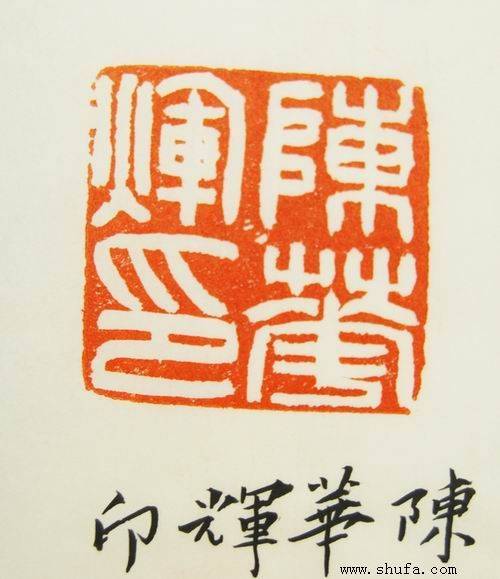 陳華
煇印
陳華輝印
www.shufa.com